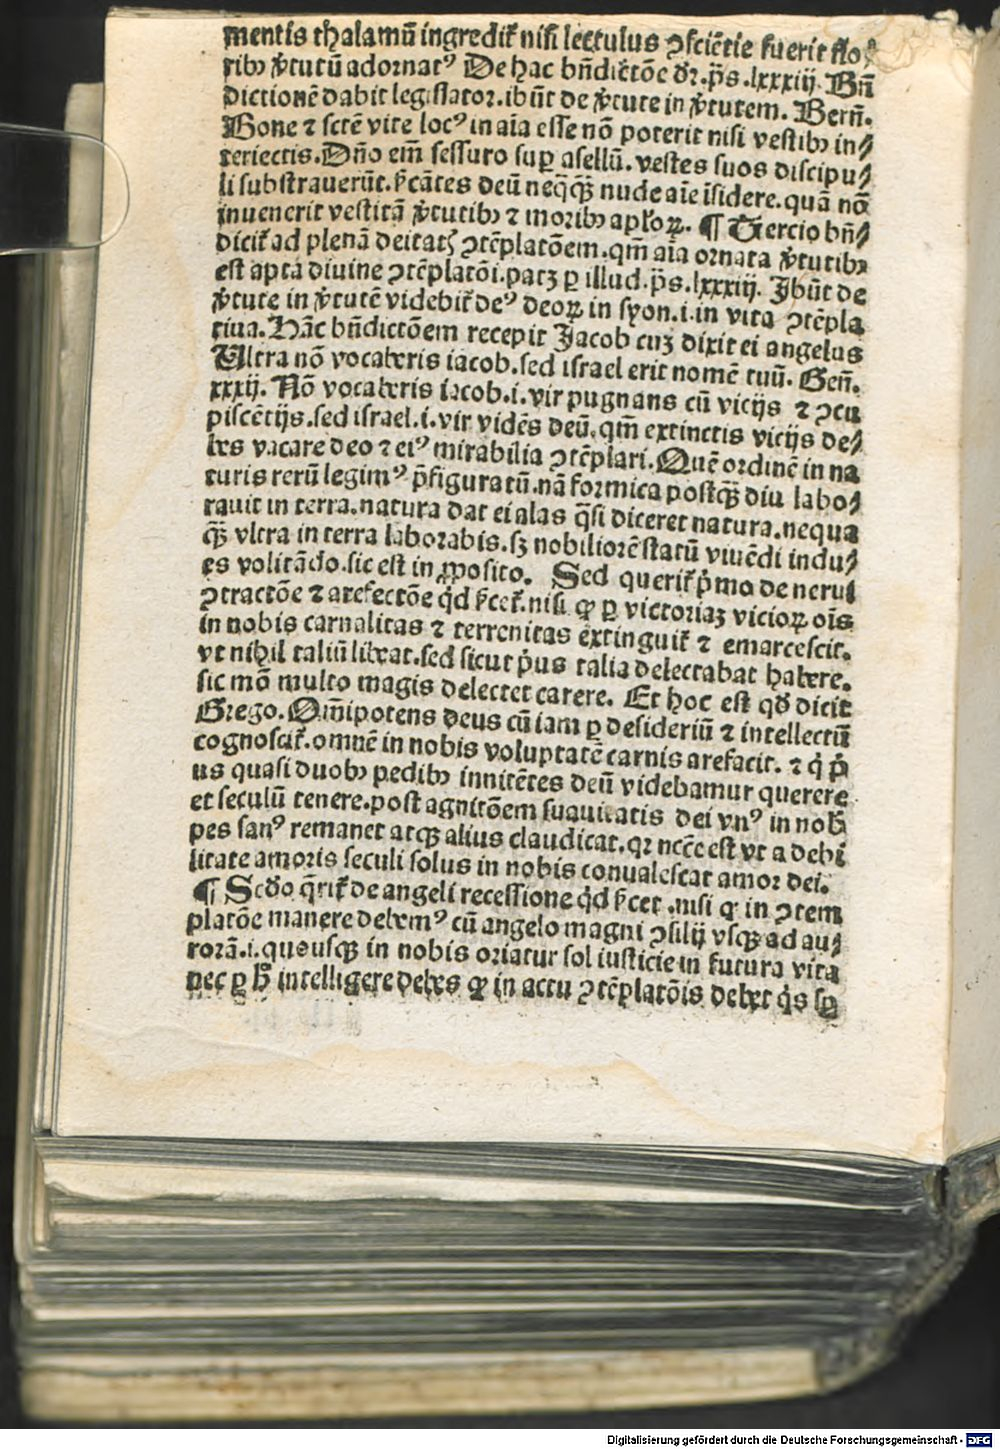 mentis thalamū ingredit᷑ nisi lectulus ꝯsciētie fuerit flo⸗
ribꝫ v̓tutū adornatꝰ De hac bn̄dictōe dr̄.ps̄.lxxxiij. Bn̄
dictionē dabit legislator.ibūt de v̓tute in v̓tutem. Bern̄.
Bone ⁊ sctē vite locꝰ in aīa esse nō poterit nisi vestibꝫ in⸗
teriectis.Dn̄o em̄ sessuro suꝑ asellū.vestes suos discipu⸗
li substrauerūt.p̄cātes deū neq̄q̄ꝫ nude aīe īsidere.quā nō
inuenerit vestitā v̓tutibꝫ ⁊ moribꝫ apl'oꝝ. ¶ Tercio bn̄⸗
dicit᷑ ad plenā deitatꝭ ꝯtēplatōem.qm̄ aīa ornata v̓tutibꝫ
est apta diuine ꝯtēplatōi.patꝫ ꝑ illud.ps̄.lxxxiij. Ibūt de
v̓tute in v̓tutē videbit᷑ deꝰ deoꝝ in syon.i.in vita ꝯtēpla
tiua.Hāc bn̄dictōem recepit Jacob cuꝫ dixit ei angelus
Ultra nō vocaberis iacob.sed israel erit nomē tuū. Gen̄.
xxxij. Nō vocaberis iacob.i.vir pugnans cū vicijs ⁊ ꝯcu
piscētijs.sed israel.i.vir vidēs deū.qm̄ extinctis vicijs de⸗
bes vacare deo ⁊ eiꝰ mirabilia ꝯtēplari.Quē ordinē in na
turis rerū legimꝰ p̄figuratū.nā formica postq̄ꝫ diu labo⸗
rauit in terra.natura dat ei alas q̄si diceret natura.nequa
q̄ꝫ vltra in terra laborabis.sꝫ nobiliorē statū viuēdi indu⸗
es volitādo.sic est in ꝓposito. Sed querit᷑ p̓mo de nerui
ꝯtractōe ⁊ arefectōe qd̓ p̄cet᷑.nisi ꝙ ꝑ victoriaꝫ vicioꝝ oīs
in nobis carnalitas ⁊ terrenitas extinguit᷑ ⁊ emarcescit.
vt nihil taliū libeat.sed sicut p̓us talia delectabat habere.
sic mō multo magis delectet carere. Et hoc est qd̓ dicit
Grego.Om̄ipotens deus cū iam ꝑ desideriū ⁊ intellectū
cognoscit᷑.omnē in nobis voluptatē carnis arefacit. ⁊ q̓ p̓
us quasi duobꝫ pedibꝫ innitētes deū videbamur querere
et seculū tenere.post agnitōem suauitatis dei vnꝰ in nob̄
pes sanꝰ remanet atqꝫ alius claudicat.qꝛ nccē est vt a debi
litate amoris seculi solus in nobis conualescat amor dei.
¶ Scd̓o q̄rit᷑ de angeli recessione qd̓ p̄cet .nisi ꝙ in ꝯtem
platōe manere debemꝰ cū angelo magni ꝯsilij vsqꝫ ad au⸗
rorā.i.quousqꝫ in nobis oriatur sol iusticie in futura vita
nec ꝑ h̄ intelligere debes ꝙ in actu ꝯtēplatōis debet q̓s sꝑ
Digitalisierung gefördert durch die Deutsche Forschungsgemeinschaft - DFG